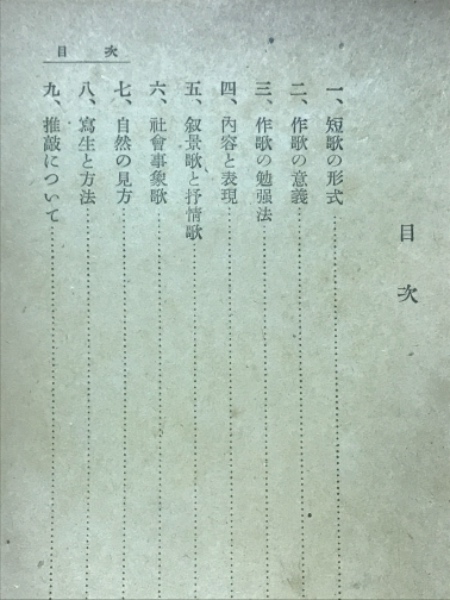 目次
目次
一、短歌の形式
二、作歌の意義
三、作歌の勉强法
四、內容と表現
五、叙景歌と抒情歌
六、社會事象歌
七、自然の見方
八、寫生と方法
九、推敲について